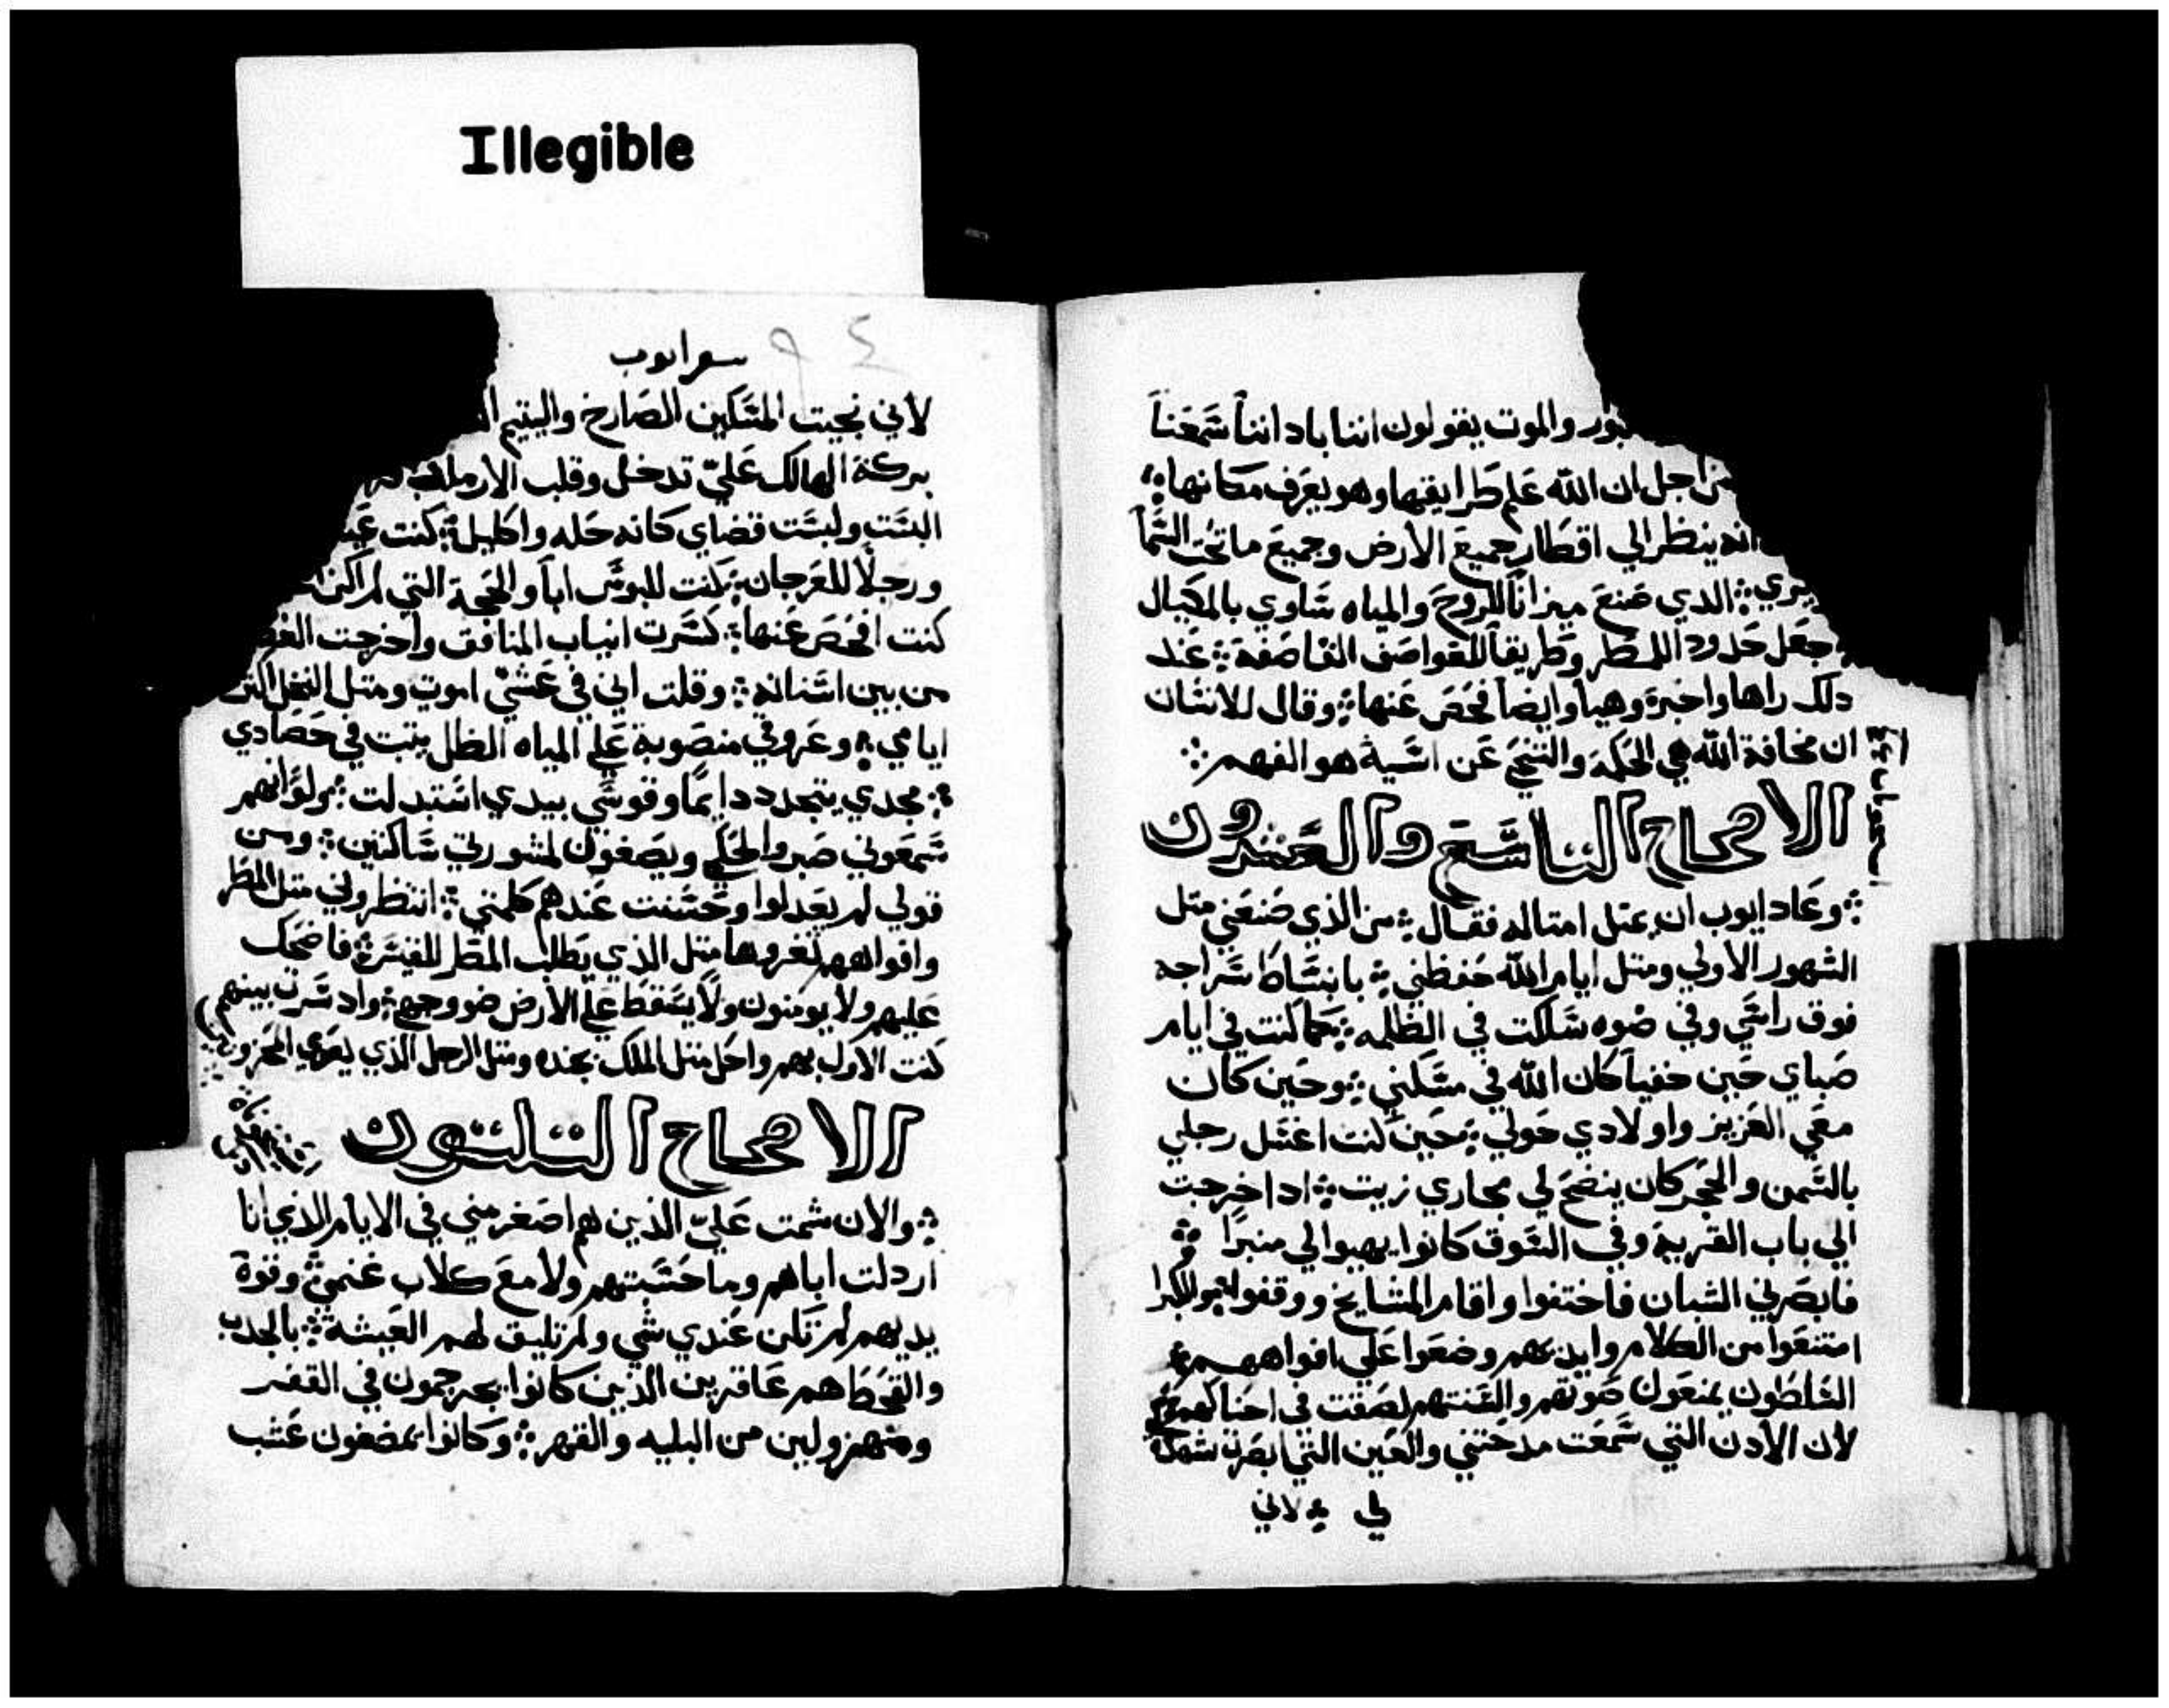 Illegible
والموت يقولون اننا باداننا سَمَعَنا
من اجل ان الله عَلم طرايقها وهو يعَرف مكانها
انه ينظر الي اقطار جميعَ الأرض وجميعَ ما تحت السَّما
يري الدي صَنعَ ميزاناً للروحَ والمياه سَاوي بالمكيال
جعَل حَدود اللمطر وطريقاً للعَواصَف القاصَفة عَند
دلك راها واخبرة وهيا وايضاً فحَصَ عَنها وقال للانسَان
ان مخافة الله هي الحَكمة والتنحي عَن اسَية هو الفهم
الاصحاح التاسَع والعَشرون
وعَاد ايوب ان يمتل امتاله فقال من الذي صَنعَني متل
الشهور الاولي ومتل ايام الله حَفظني بانبسَاط سَراجه
فوق راسَي وفي ضوه سَلكت في الظلمه كما كنت في ايام
صَباي حَين خفياً كان الله في مسَكني وحَين كان
معَي العَزيز واولادي حَولي حَين كنت اغسَل رجلي
بالسَّمن والحجر كان ينضحَ لي مجاري زيت ادا خرجت
الي باب القرية وفي السَوق كانوا يهيوا لي منبرًا
فابصَرني الشبان فاختفوا واقام المشايخ ووقفوا
امتنعَوا من الكلام وايديهم وضعَوا عَلي افواههم
السَلطون يمنعَون صَوتهم والسَنتهم لصَقت في احَناكهم
لان الأدن التي سَمَعَت مدحَتني والعَين التي ابصَرت شهدة
لي لاني
سفر ايوب
٩٤
لأني نجيت المسَكين الصَارخ واليتيم
بركة الهالك عَليّ تدخل وقلب الارملة
البسَت ولبسَت قضاي كانه حَله واكليل كنت
ورجلاً للعَرجان كنت للبوسَ اباً والحَجة التي لم اكن
كنت افحَصَ عَنها كسَرت انياب المنافق واخرجت
من بين اسَنانه وقلت اني في عَشي اموت ومتل النخل اكتر
ايامي وعَروقي منصَوبة عَلي المياه الظل يتبت في حَصَادي
مجدي يتجدد دايماً وقوسَي بيدي اسَتبدلت
سَمعَوني صَبروا لحَكم ويصَغون لمشورتي سَاكتين ومن
قولي لم يعَدلوا وحَسَنت عَندهم كلمتي انتظروني متل المطر
وافواههم فغروها متل الذي يطلب المطر للفيسَرة فاضحَك
عَليهم ولا يومنون ولا يسَقط عَلي الأرض ضو وجهي وادا سَرت بينهم
كنت الاول بهم واحل متل الملك بجنده ومتل الرجل الذي يعَزي المحزونين
الاصحاح التلتون
والان شمت عَليّ الذين هم اصَغر مني في الايام الذي انا
اردلت اباهم وما حَسَبتهم ولا معَ كلاب غنمي وقوة
يديهم لم تكن عَندي شي ولم تليق لهم العَيشة بالجدب
والقحط هم عَاقرين الذين كانوا يجرجمون في القفر
ومتهزولين من البليه والقهر وكانوا يمضغون عَشب